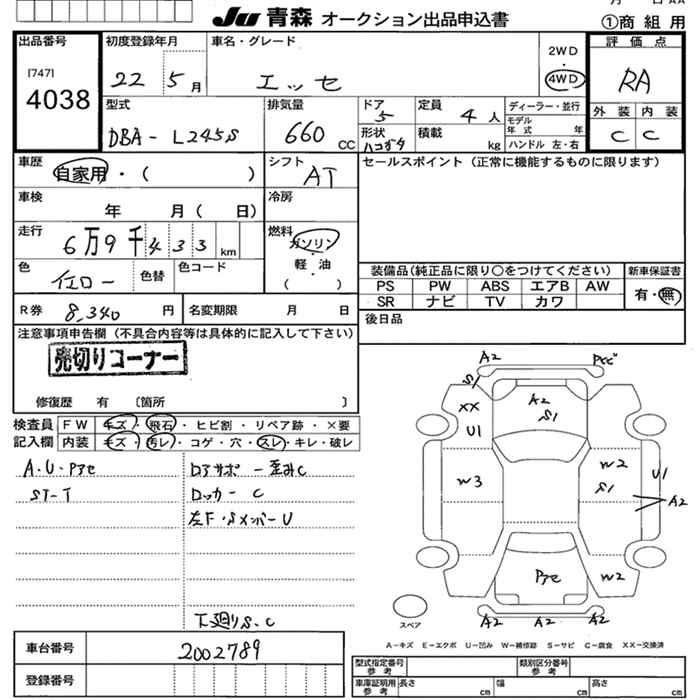 JU 青森 オークション出品申込書
①商組用
出品番号
[747]
4038
初度登録年月
22 5月
車名・グレード
エッセ
2WD
4WD
評価点
RA
外装 内装
C C
型式
DBA-L245S
排気量
660 CC
ドア
5
定員
4人
ディーラー・並行
モデル年式 年
形状
ハコガタ
積載 kg
ハンドル 左・右
車歴
自家用・( )
シフト
AT
セールスポイント(正常に機能するものに限ります)
車検
年 月( 日)
冷房
走行
6万9千433 km
燃料
ガソリン
軽・油
( )
色
イエロー
色替
色コード
装備品(純正品に限り○をつけてください)
新車保証書
PS PW ABS エアB AW
有・無
SR ナビ TV カワ
R券 8,340 円
名変期限 月 日
後日品
注意事項申告欄(不具合内容等は具体的に記入して下さい)
売切りコーナー
修復歴 有 〔箇所 〕
検査員記入欄
FW キズ・飛石・ヒビ割・リペア跡・×要
内装 キズ・汚レ・コゲ・穴・スレ・キレ・破レ
A・U・Pアセ
ST-T
ロアサポー歪みC
ロッカーC
左F・SメンバーU
下廻りS・C
A2
Pサビ
S
XX
U1
A2
S1
W3
W2
S1
U1
A2
Pアセ
W2
A2 A2 A2
スペア
A-キズ E-エクボ U-凹み W-補修跡 S-サビ C-腐食 XX-交換済
車台番号
2002789
登録番号
型式指定番号参考
類別区分番号参考
車庫証明用参考
長さ cm
幅 cm
高さ cm